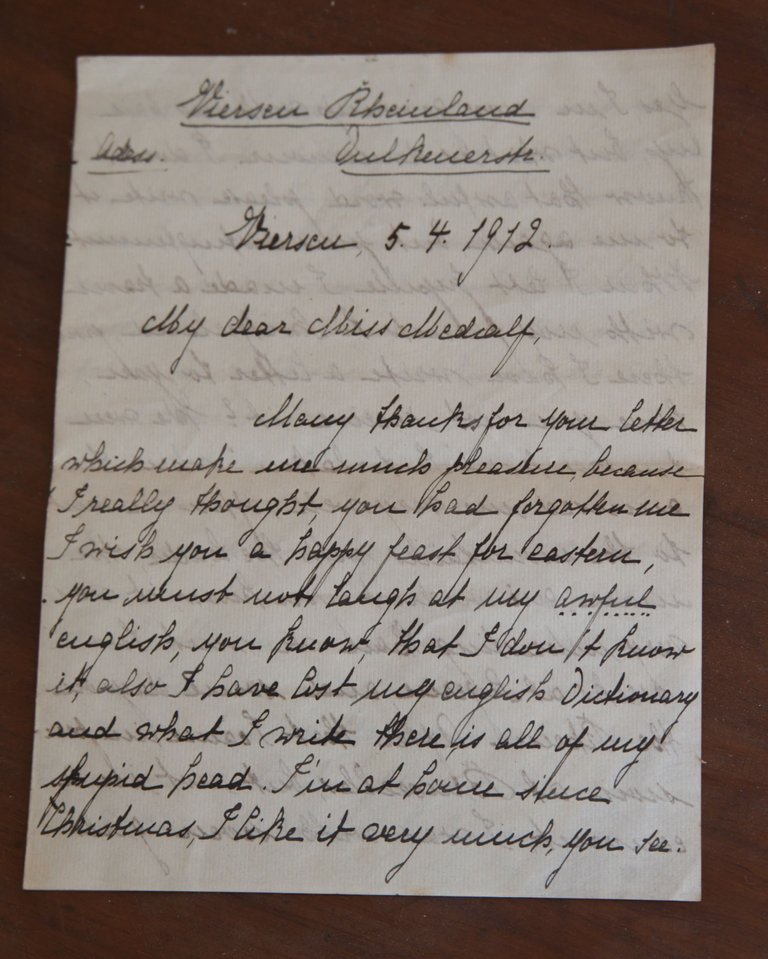 Viersen Rheinland
Adess. Dulkenerstr.
Viersen, 5. 4. 1912.
My dear Miss Medcalf,
Many thanks for your letter
which make me much pleasure, because
I really thought, you had forgotten me
I wish you a happy feast for eastern,
you must not laugh at my awful
english, you know, that I don't know
it, also I have lost my english Dictionary
and what I write there is all of my
stupid head. I'm at home since
Christmas, I like it very much, you see.